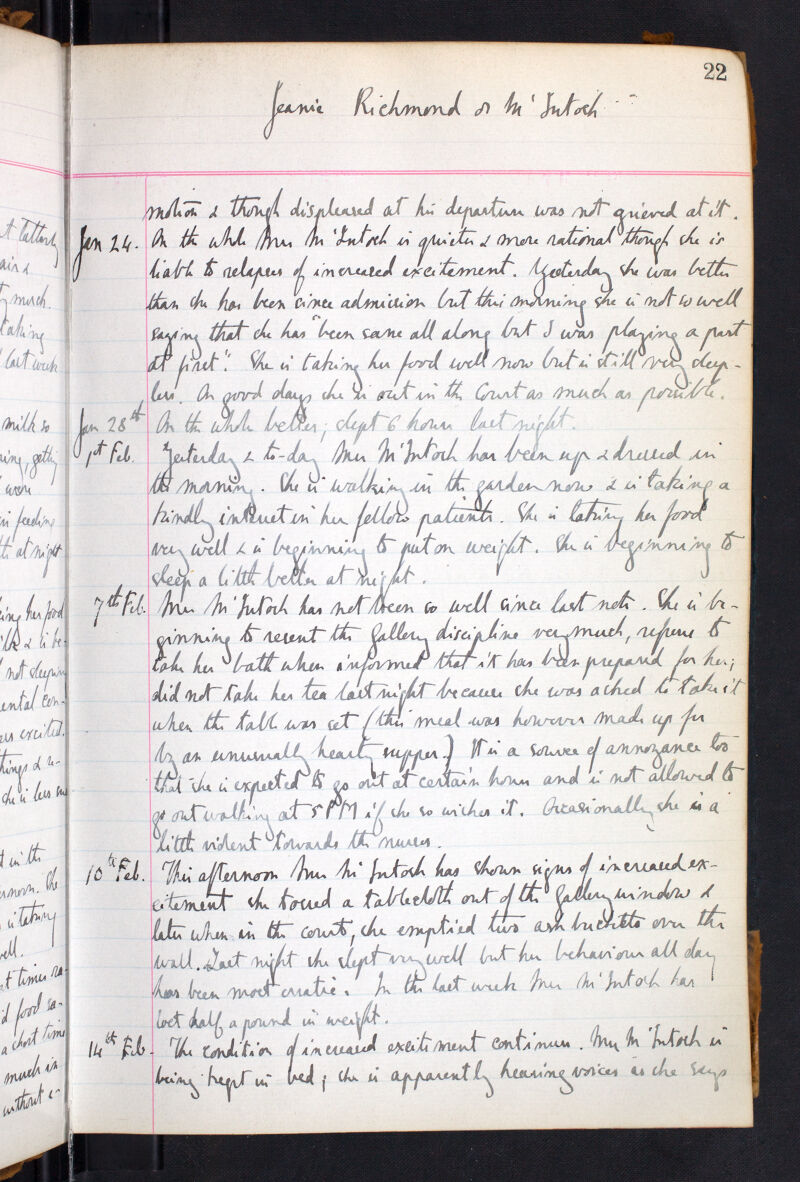 22
Jeanie Richmond or McIntosh
motion & though displeased at his departure was not grieved at it.
Jan 24. On the whole Mrs McIntosh is quieter & more rational though she is
liable to relapses of increased excitement. Yesterday she was better
than she has been since admission but this morning she is not so well
saying that she has "been sane all along but I was playing a part
at first". She is taking her food well now but is still very sleep-
less. On good days she is out in the Court as much as possible.
Jan 28th On the whole better; slept 6 hours last night.
1st Feb. Yesterday & to-day Mrs McIntosh has been up & dressed in
the morning. She is walking in the garden now & is taking a
kindly interest in her fellow patients. She is taking her food
very well & is beginning to put on weight. She is beginning to
sleep a little better at night.
7th Feb. Mrs McIntosh has not been so well since last note. She is be-
ginning to resent the Gallery discipline very much, refuses to
take her bath when informed that it has been prepared for her;
did not take her tea last night because she was asked to take it
when the table was set (this meal was however made up for
by an unusually hearty supper.) It is a source of annoyance too
that she is expected to go out at certain hours and is not allowed to
go out walking at 5 PM if she so wishes it. Occasionally she is a
little violent towards the nurses.
10th Feb. This afternoon Mrs McIntosh has shown signs of increased ex-
citement she tossed a tablecloth out of the Gallery window &
later when in the court, she emptied two ash buckets over the
wall. Last night she slept very well but her behaviour all day
has been most erratic. In the last week Mrs McIntosh has
lost half a pound in weight.
14th Feb. The condition of increased excitement continues. Mrs McIntosh is
being kept in bed; she is apparently hearing voices as she says